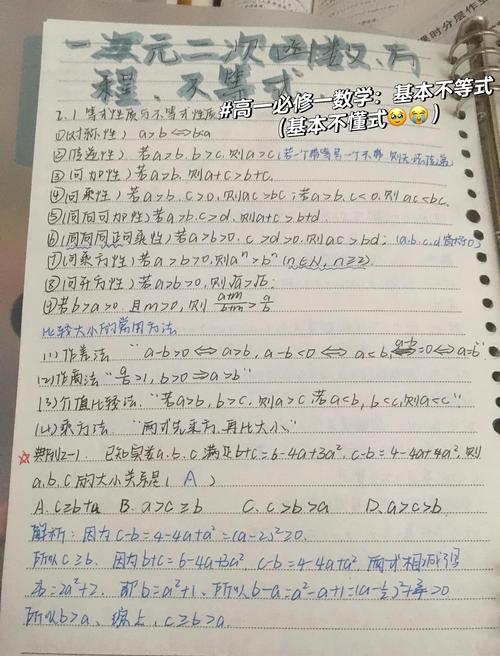 时分层作业
一次元二次函数、方
程、不等式
#高一必修一数学：基本不等式
（基本不懂式🥹😭）
2.1 等式性质与不等式性质
①(对称性) a>b⇔b<a
②(传递性) 若a>b,b>c,则a>c(若一个带等号一个不带,则无法传递)
③(可加性) 若a>b,则a+c>b+c.
④(可乘性) 若a>b,c>0,则ac>bc;若a>b,c<0,则ac<bc.
⑤(同向可加性) 若a>b,c>d,则a+c>b+d.
⑥(同向同正可乘性) 若a>b>0,c>d>0,则ac>bd; (a.b.c.d皆>0)
⑦(可乘方性) 若a>b>0,则aⁿ>bⁿ (n∈N, n≥2).
⑧(可开方性) 若a>b>0,则√a>√b;
⑨若b>a>0 且m>0,则 (a+m)/(b+m)>a/b
比较大小的常用方法
(1)作差法 "a-b>0⇔a>b, a-b<0⇔a<b, a-b=0⇔a=b"
(2)作商法 "a/b>1,b>0⇒a>b"
(3)介值比较法 "若a>b,b>c,则a>c 若a<b,b<c,则a<c"
(4)乘方法 "两式先乘方,再比大小"
☆典例2-1. 已知实数a.b.c.满足b+c=6-4a+3a², c-b=4-4a+a², 则
a.b.c的大小关系是( A )
A. c≥b>a B. a>c≥b C. c>b>a D. a>c>b.
解析:因为c-b=4-4a+a²=(a-2)²≥0.
所以c≥b. 因为b+c=6-4a+3a² c-b=4-4a+a² 两式相减得
2b=2a²+2. 即b=a²+1,所以b-a=a²-a+1=(a-½)²+¾>0
所以b>a、综上,c≥b>a.